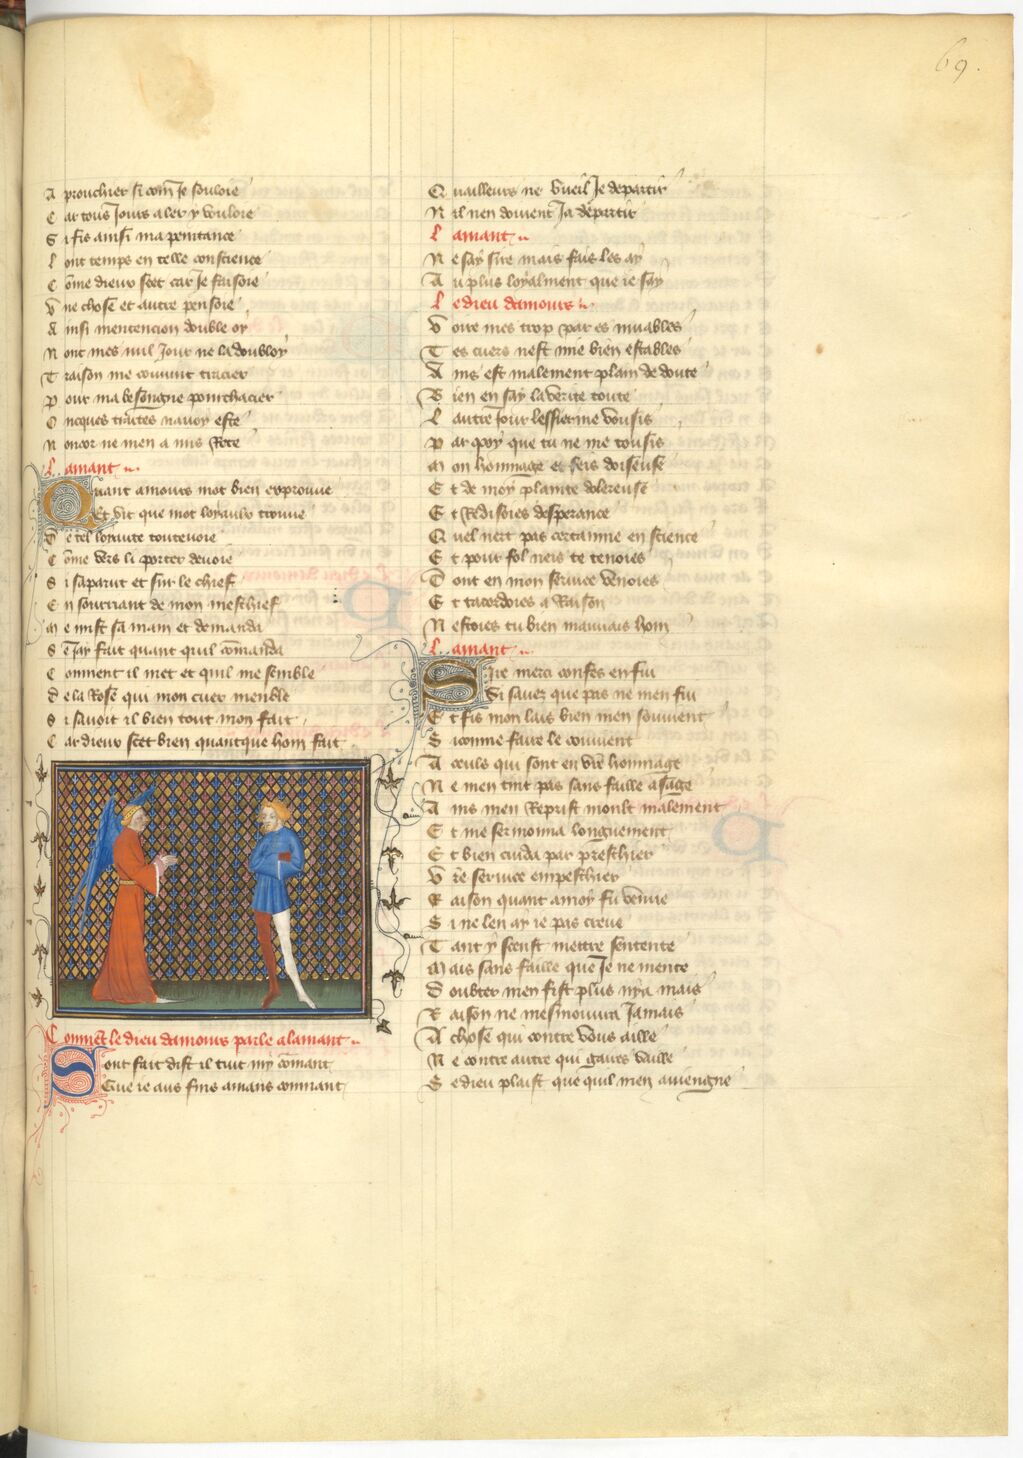 69.
A prouchier si com̄ Je souloie
C ar tous Jours aler y vouloie
S i fis ainsi ma penitance
L ont temps en telle conscience
C ōme dieux scet car Je faisoie
V ne chose et autre pensoie
A insi mentencion double oy
N ont mes nul Jour ne la doubloy
T raison me couvint tracier
P our ma besongne pourchacier
O ncques traites navoy este
N encor ne men a nus Rete
L amant
Quant amours mot bien esprouue
Et vit que mot loyaulx trouue
D e tel loyaute toutevoie
C ōme vers li porter devoie
S i saparut et sur le chief
E n souzriant de mon meschief
M e mist sa main et demanda
S e Jay fait quant quil cōmanda
C omment il met et quil me semble
D e la Rose qui mon cuer memble
S i savoit il bien tout mon fait
C ar dieux scet bien quantque hom fait
Commēt le dieu damours parle a lamant
Sont fait dist il tuit my cōmant
Que ie aus fins amans commant
Q uailleurs ne vueil Je departir
N il nen doivent Ja departir
L amant
N e say sire mais fais les ay
A u plus loyalment que ie say
L e dieu damours
V oire mes trop par es muables
T es cuers nest mie bien estables
A ins est malement plain de doute
B ien en say la verite toute
L autre Jour lessier me vousis
P ar poy que tu ne me tousis
M on hommage et feis doiseuse
E t de moy plainte dolereuse
E t Redisoies desperance
Q uel nert pas certainne en science
E t pour fol neis te tenoies
D ont en mon service venoies
E t tacordoies a Raison
N estoies tu bien mauvais hom
L amant
Sire merci confes en fui
Si savez que pas ne men fui
E t fis mon lais bien men souvient
S i comme faire le convient
A ceuls qui sont en vr̄e hommage
N e men tint pas sans faille a sage
A ins men Reprist moult malement
E t me sermonna longuement
E t bien cuida par preschier
V r̄e service empeschier
R aison quant a moy fu venue
S i ne len ay ie pas creue
T ant y sceust mettre sentente
M ais sans faille que Je ne mente
D oubter men fist plus nya mais
R aison ne mesmouvra Jamais
A chose qui contre vous aille
N e contre autre qui gaires vaille
S e dieu plaist que quil men aviengne